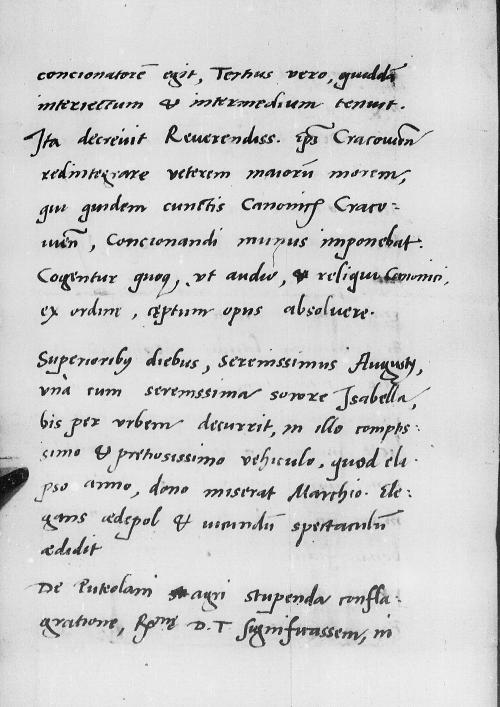 concionatorē egit, Tertius vero, quiddā
interiectum & intermedium tenuit.
Ita decrevit Reverendiss. ep̄s Cracovieñ
redintegrare veterem maiorū morem,
qui quidem cunctis Canonicis Craco-
vieñ, Concionandi munus imponebat.
Cogentur quoq, vt audio, & reliqui Canonici,
ex ordine, cęptum opus absolvere.
Superioribȝ diebus, serenissimus Augustȝ,
vnà cum serenissima sorore Isabella,
bis per vrbem decurrit, in illo comptis-
simo & pretiosissimo vehiculo, quod
ipso anno, dono miserat Marchio. Ele-
gans ædepol & iucundū spectaculū
ædidit
De Puteolani agri stupenda confla-
gratione, D.T significassem, in